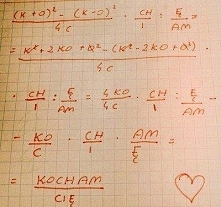 (K+O)² - (K-O)² / 4C · CH/1 : Ę/AM =
= K² + 2KO + O² - (K² - 2KO + O²) / 4C ·
· CH/1 : Ę/AM = 4KO/4C · CH/1 : Ę/AM -
- KO/C · CH/1 · AM/Ę =
= KOCHAM/CIĘ